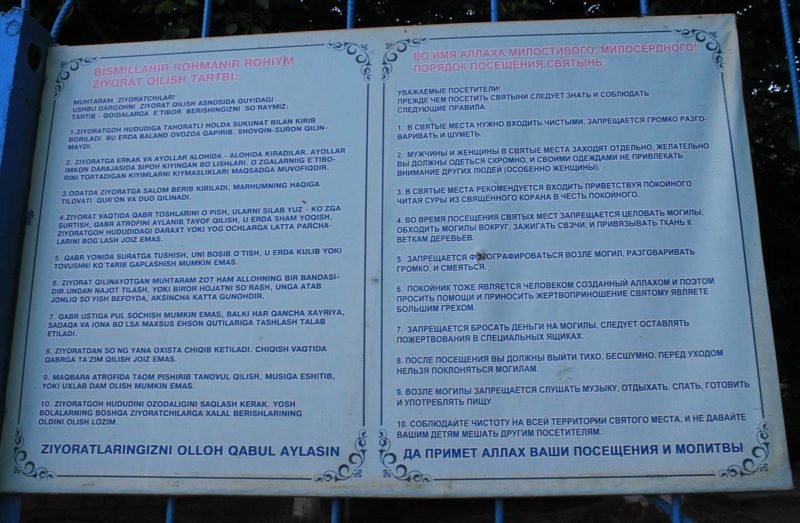 BISMILLAHIR ROHMANIR ROHIYM
ZIYORAT QILISH TARTBI:
MUHTARAM ZIYORATCHILAR!
USHBU DARGOHNI ZIYORAT QILISH ASNOSIDA QUYIDAGI
TARTIB - QOIDALARGA E'TIBOR BERISHINGIZNI SO'RAYMIZ:
1. ZIYORATGOH HUDUDIGA TAHORATLI HOLDA SUKUNAT BILAN KIRIB
BORILADI. BU ERDA BALAND OVOZDA GAPIRIB. SHOVQIN-SURON QILIN-
MAYDI.
2. ZIYORATGA ERKAK VA AYOLLAR ALOHIDA - ALOHIDA KIRADILAR. AYOLLAR
IMKON DARAJASIDA SIPOH KIYINGAN BO'LISHLARI. O'ZGALARNIIG E'TIBO-
RINI TORTADIGAN KIYIMLARNI KIYMASLIKLARI MAQSADGA MUVOFIQDIR.
3.ODATDA ZIYORATGA SALOM BERIB KIRILADI, MARHUMNING HAQIGA
TILOVATI QUR'ON VA DUO QILINADI.
4.ZIYORAT VAQTIDA QABR TOSHLARINI O'PISH, ULARNI SILAB YUZ - KO'ZGA
SURTISH, QABR ATROFINI AYLANIB TAVOF QILISH, U ERDA SHAM YOQISH,
ZIYORATGOH HUDUDIDAGI DARAXT YOKI YOG'OCHLARGA LATTA PARCHA-
LARINI BOG'LASH JOIZ EMAS.
5. QABR YONIDA SURATGA TUSHISH, UNI BOSIB O'TISH, U ERDA KULIB YOKI
TOVUSHNI KO'TARIB GAPLASHISH MUMKIN EMAS.
6. ZIYORAT QILINAYOTGAN MUHTARAM ZOT HAM ALLOHNING BIR BANDASI-
DIR.UNDAN NAJOT TILASH, YOKI BIROR HOJATNI SO'RASH, UNGA ATAB
JONLIQ SO'YISH BEFOYDA, AKSINCHA KATTA GUNOHDIR.
7. QABR USTIGA PUL SOCHISH MUMKIN EMAS, BALKI HAR QANCHA XAYRIYA,
SADAQA VA IONA BO'LSA MAXSUS EHSON QUTILARIGA TASHLASH TALAB
ETILADI.
8. ZIYORATDAN SO'NG YANA OXISTA CHIQIB KETILADI. CHIQISH VAQTIDA
QABRGA TA'ZIM QILISH JOIZ EMAS.
9. MAQBARA ATROFIDA TAOM PISHIRIB TANOVUL QILISH, MUSIQA ESHITIB,
YOKI UXLAB DAM OLISH MUMKIN EMAS.
10. ZIYORATGOH HUDUDINI OZODALIGINI SAQLASH KERAK. YOSH
BOLALARNING BOSHQA ZIYORATCHILARGA XALAL BERISHLARINING
OLDINI OLISH LOZIM.
ZIYORATLARINGIZNI OLLOH QABUL AYLASIN
ВО ИМЯ АЛЛАХА МИЛОСТИВОГО, МИЛОСЕРДНОГО!
ПОРЯДОК ПОСЕЩЕНИЯ СВЯТЫНЬ:
УВАЖАЕМЫЕ ПОСЕТИТЕЛИ!
ПРЕЖДЕ ЧЕМ ПОСЕТИТЬ СВЯТЫНИ СЛЕДУЕТ ЗНАТЬ И СОБЛЮДАТЬ
СЛЕДУЮЩИЕ ПРАВИЛА:
1. В СВЯТЫЕ МЕСТА НУЖНО ВХОДИТЬ ЧИСТЫМИ, ЗАПРЕЩАЕТСЯ ГРОМКО РАЗГО-
ВАРИВАТЬ И ШУМЕТЬ.
2. МУЖЧИНЫ И ЖЕНЩИНЫ В СВЯТЫЕ МЕСТА ЗАХОДЯТ ОТДЕЛЬНО, ЖЕЛАТЕЛЬНО
ВЫ ДОЛЖНЫ ОДЕТЬСЯ СКРОМНО, И СВОИМИ ОДЕЖДАМИ НЕ ПРИВЛЕКАТЬ
ВНИМАНИЕ ДРУГИХ ЛЮДЕЙ (ОСОБЕННО ЖЕНЩИНЫ).
3. В СВЯТЫЕ МЕСТА РЕКОМЕНДУЕТСЯ ВХОДИТЬ ПРИВЕТСТВУЯ ПОКОЙНОГО
ЧИТАЯ СУРЫ ИЗ СВЯЩЕННОГО КОРАНА В ЧЕСТЬ ПОКОЙНОГО.
4. ВО ВРЕМЯ ПОСЕЩЕНИЯ СВЯТЫХ МЕСТ ЗАПРЕЩАЕТСЯ ЦЕЛОВАТЬ МОГИЛЫ,
ОБХОДИТЬ МОГИЛЫ ВОКРУГ, ЗАЖИГАТЬ СВЭЧИ, И ПРИВЯЗЫВАТЬ ТКАНЬ К
ВЕТКАМ ДЕРЕВЬЕВ.
5. ЗАПРЕЩАЕТСЯ ФОТОГРАФИРОВАТЬСЯ ВОЗЛЕ МОГИЛ, РАЗГОВАРИВАТЬ
ГРОМКО, И СМЕЯТЬСЯ.
6. ПОКОЙНИК ТОЖЕ ЯВЛЯЕТСЯ ЧЕЛОВЕКОМ СОЗДАННЫМ АЛЛАХОМ И ПОЭТОМ
ПРОСИТЬ ПОМОЩИ И ПРИНОСИТЬ ЖЕРТВОПРИНОШЕНИЕ СВЯТОМУ ЯВЛЯЕТЕ
БОЛЬШИМ ГРЕХОМ.
7. ЗАПРЕЩАЕТСЯ БРОСАТЬ ДЕНЬГИ НА МОГИЛЫ, СЛЕДУЕТ ОСТАВЛЯТЬ
ПОЖЕРТВОВАНИЯ В СПЕЦИАЛЬНЫХ ЯЩИКАХ.
8. ПОСЛЕ ПОСЕЩЕНИЯ ВЫ ДОЛЖНЫ ВЫЙТИ ТИХО, БЕСШУМНО. ПЕРЕД УХОДОМ
НЕЛЬЗЯ ПОКЛОНЯТЬСЯ МОГИЛАМ.
9. ВОЗЛЕ МОГИЛЫ ЗАПРЕЩАЕТСЯ СЛУШАТЬ МУЗЫКУ, ОТДЫХАТЬ, СПАТЬ, ГОТОВИТЬ
И УПОТРЕБЛЯТЬ ПИЩУ.
10. СОБЛЮДАЙТЕ ЧИСТОТУ НА ВСЕЙ ТЕРРИТОРИИ СВЯТОГО МЕСТА, И НЕ ДАВАЙТЕ
ВАШИМ ДЕТЯМ МЕШАТЬ ДРУГИМ ПОСЕТИТЕЛЯМ.
ДА ПРИМЕТ АЛЛАХ ВАШИ ПОСЕЩЕНИЯ И МОЛИТВЫ